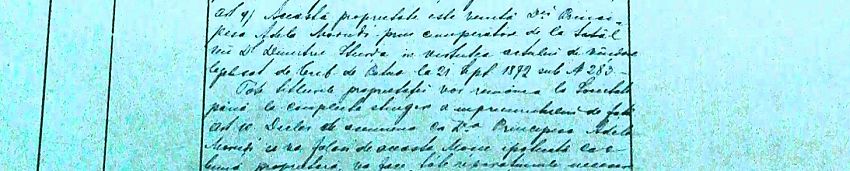 art 9) Această proprietate este venită Dnei Princi-
pesa Adela Moruzi prin cumperatore de la Tatăl
seu Dl Dimitrie Sturza in virtutea actului de vîndare
legalisat de Trib de Petro la 21 Sept 1872 sub N 283 -
Tote titlurile proprietăței vor remâne la Societate
până la complecta stingere a imprumutului de fată
art 10. Declar de asemenea ca Dna Principesa Adela
Moruzi se va folosi de aceasta Mosie ipotecată ca o
bună proprietară, va face tóte reparațiunile necesare